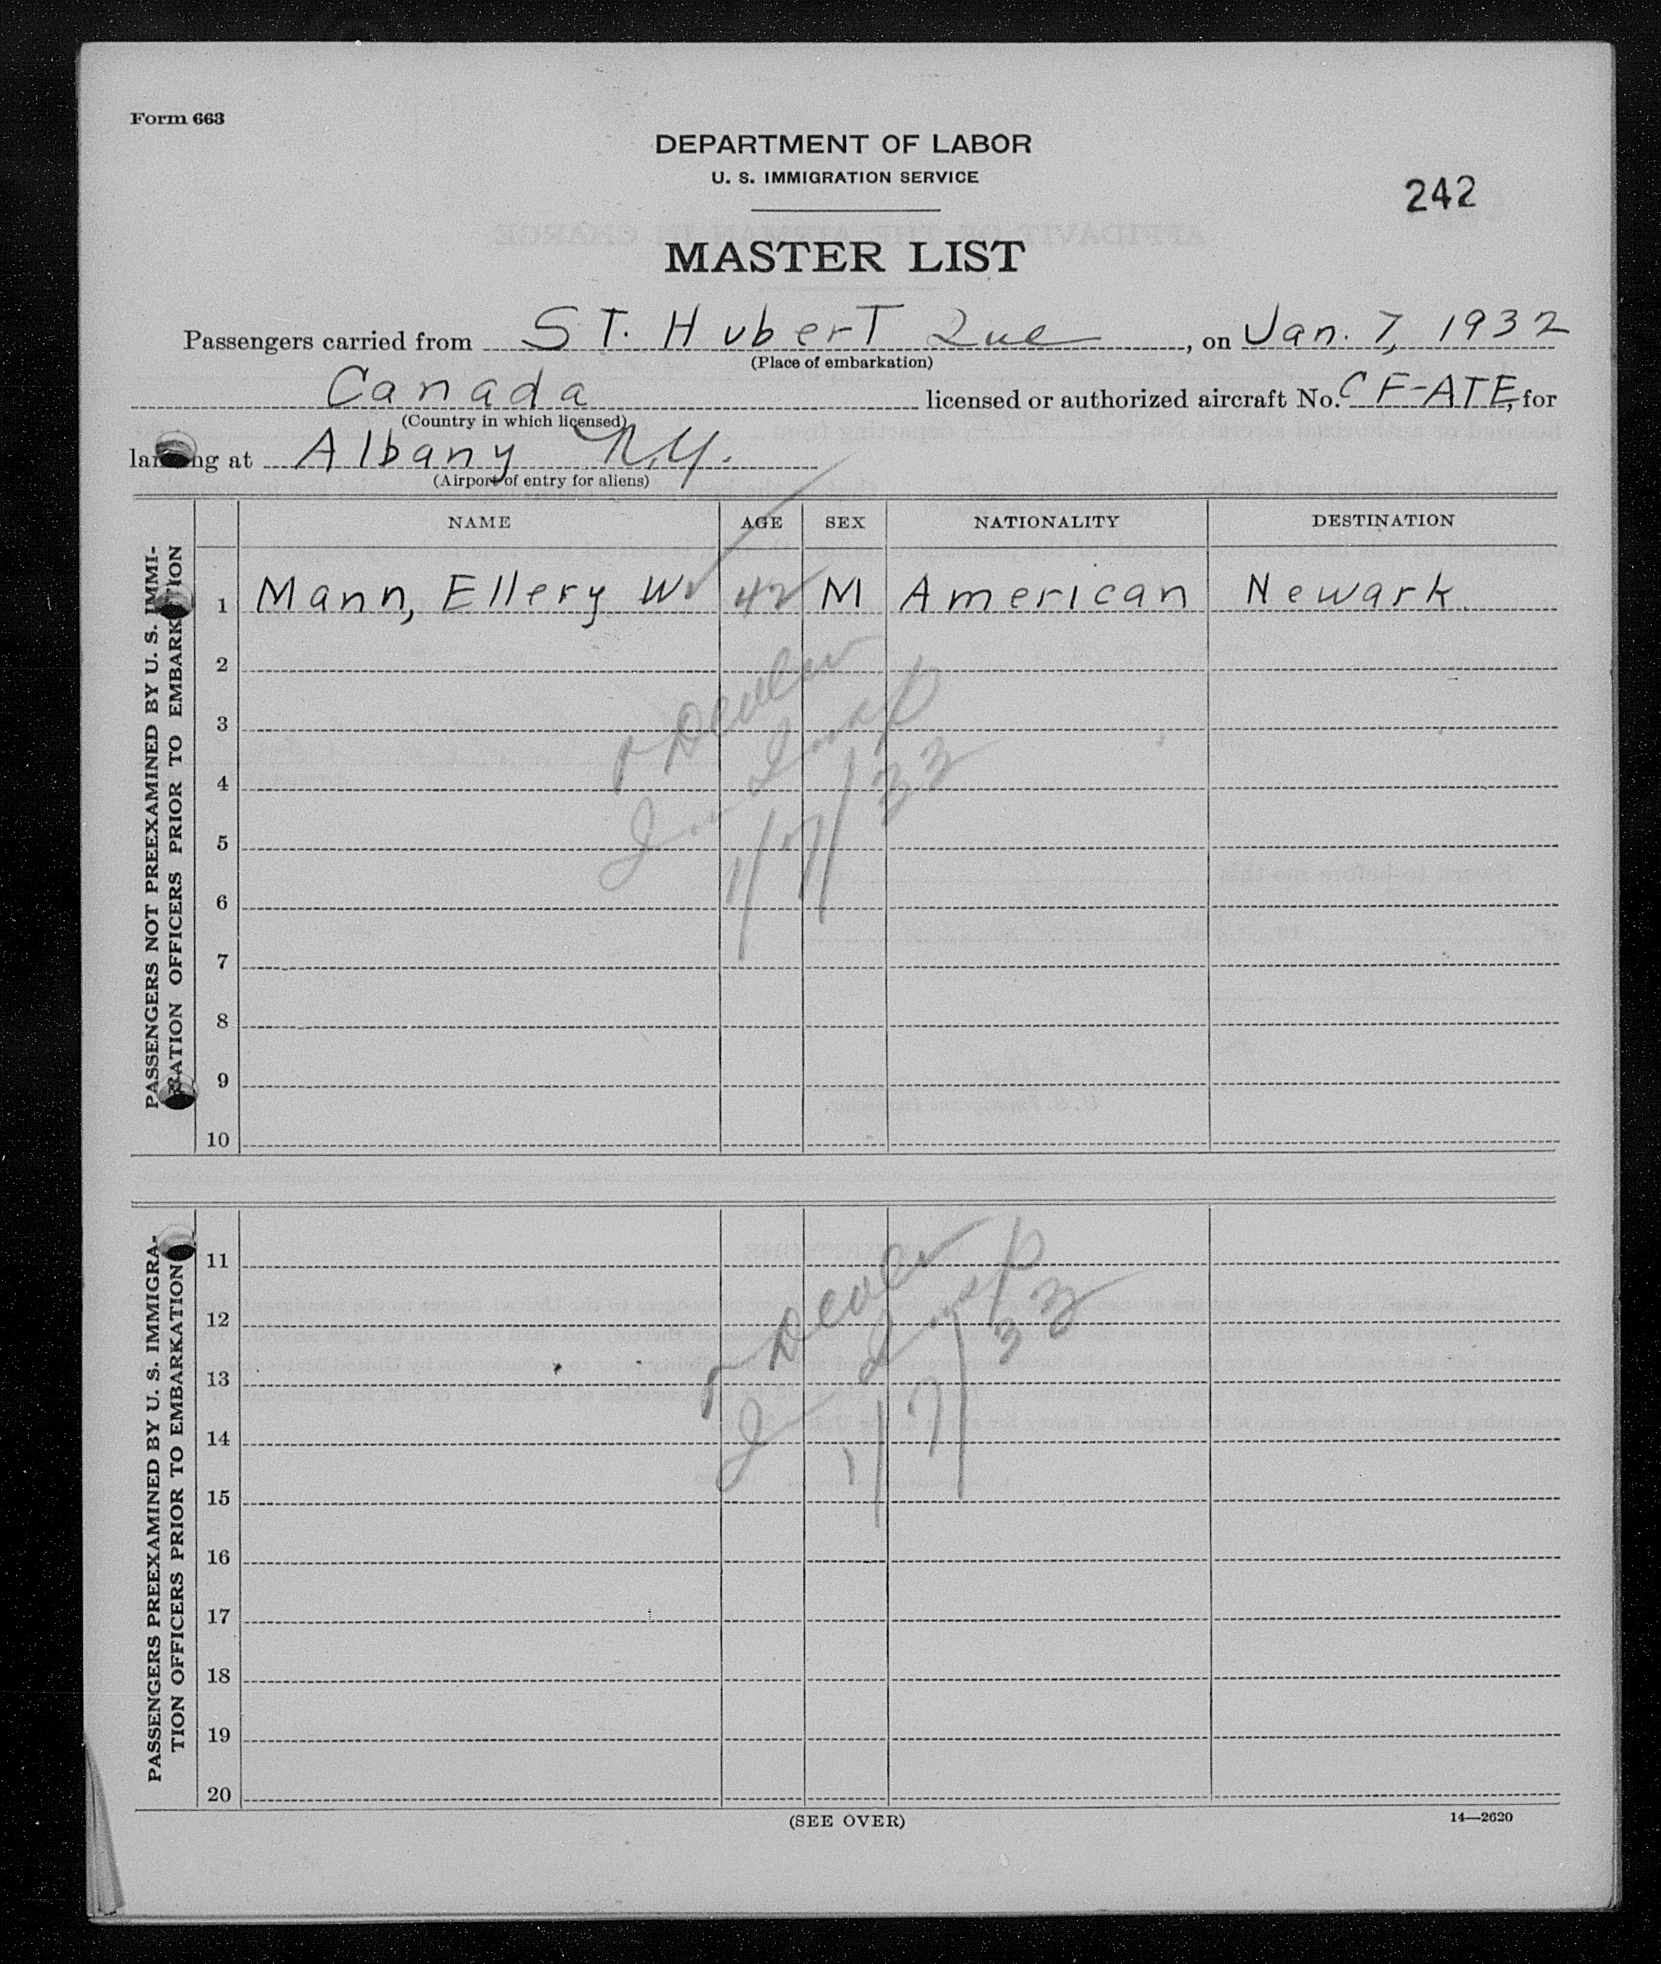 Form 663
DEPARTMENT OF LABOR
U. S. IMMIGRATION SERVICE
242
MASTER LIST
Passengers carried from ST. HuberT Que, on Jan. 7, 1932
(Place of embarkation)
Canada licensed or authorized aircraft No. CF-ATE, for
(Country in which licensed)
landing at Albany N.Y.
(Airport of entry for aliens)
PASSENGERS NOT PREEXAMINED BY U. S. IMMI-
GRATION OFFICERS PRIOR TO EMBARKATION
NAME AGE SEX NATIONALITY DESTINATION
1 Mann, Ellery W. 42 M American Newark
2
3
4
5
6
7
8
9
10
Imm Insp
1/7/32
PASSENGERS PREEXAMINED BY U. S. IMMIGRA-
TION OFFICERS PRIOR TO EMBARKATION
11
12
13
14
15
16
17
18
19
20
Imm Insp
1/7/32
(SEE OVER)
14—2620